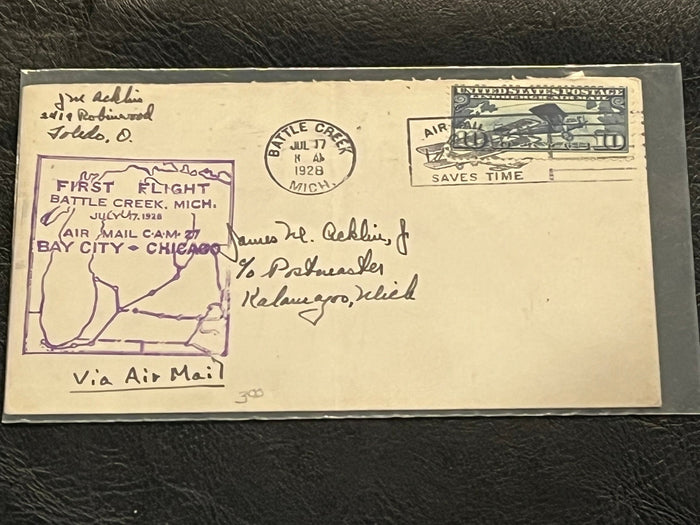 J M Acklin
2419 Robinwood
Toledo, O.
FIRST FLIGHT
BATTLE CREEK, MICH.
JULY 17, 1928
AIR MAIL C·A·M· 27
BAY CITY - CHICAGO
Via Air Mail
BATTLE CREEK
JUL 17
1928
MICH.
AIR MAIL
SAVES TIME
UNITED STATES POSTAGE
10 10
James M. Acklin, Jr
c/o Postmaster
Kalamazoo, Mich
300